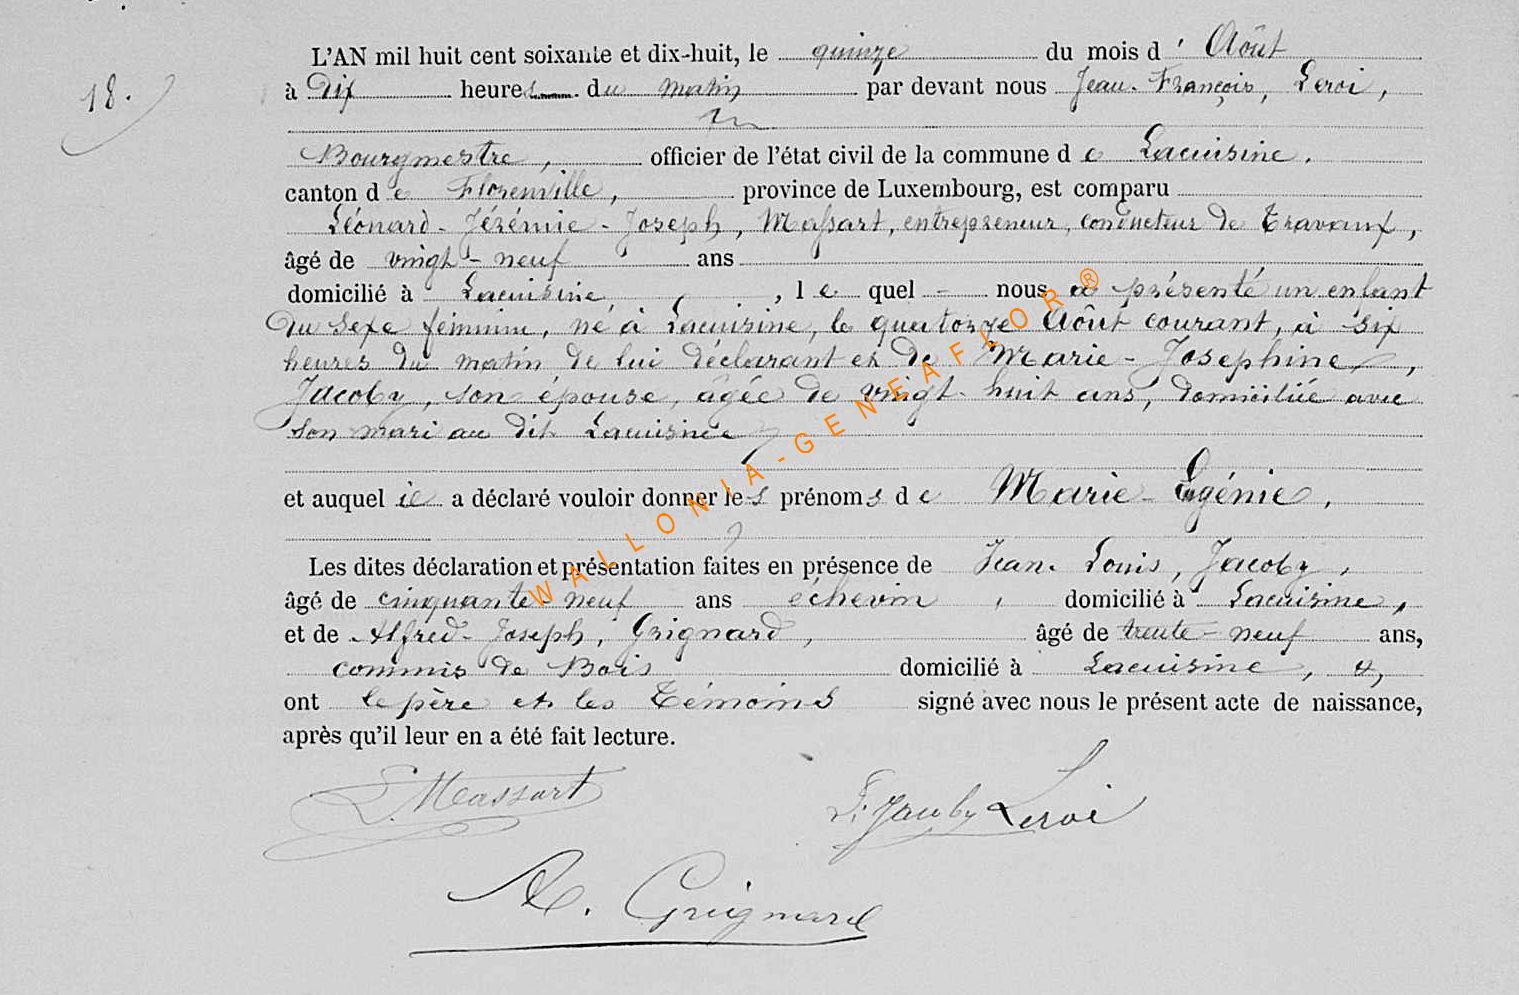 L'AN mil huit cent soixante et dix-huit, le quinze du mois d' Août
18.
à Dix heures du matin par devant nous Jean-François, Leroi,
Bourgmestre, officier de l'état civil de la commune de Lacuisine.
canton de Florenville, province de Luxembourg, est comparu
Léonard-Jérémie-Joseph, Massart, entrepreneur, conducteur de Travaux,
âgé de vingt-neuf ans
domicilié à Lacuisine, le quel - nous a présenté un enlant
du sexe féminin, né à Lacuisine, le quatorze Août courant, à six
heures du matin de lui déclarant et de Marie-Josephine,
Jacoby, son épouse, âgée de vingt-huit ans, domiciliée avec
son mari au dit Lacuisine
et auquel il a déclaré vouloir donner les prénoms de Marie-Egénie,
Les dites déclaration et présentation faites en présence de Jean-Louis, Jacoby,
âgé de cinquante-neuf ans échevin, domicilié à Lacuisine,
et de Alfred-Joseph, Grignard, âgé de trente-neuf ans,
commis de Bois domicilié à Lacuisine, &,
ont le père et les Témoins signé avec nous le présent acte de naissance,
après qu'il leur en a été fait lecture.
L. Massart
Jacoby Leroi
Al. Grignard
WALLONIA-GENEAFLOR®